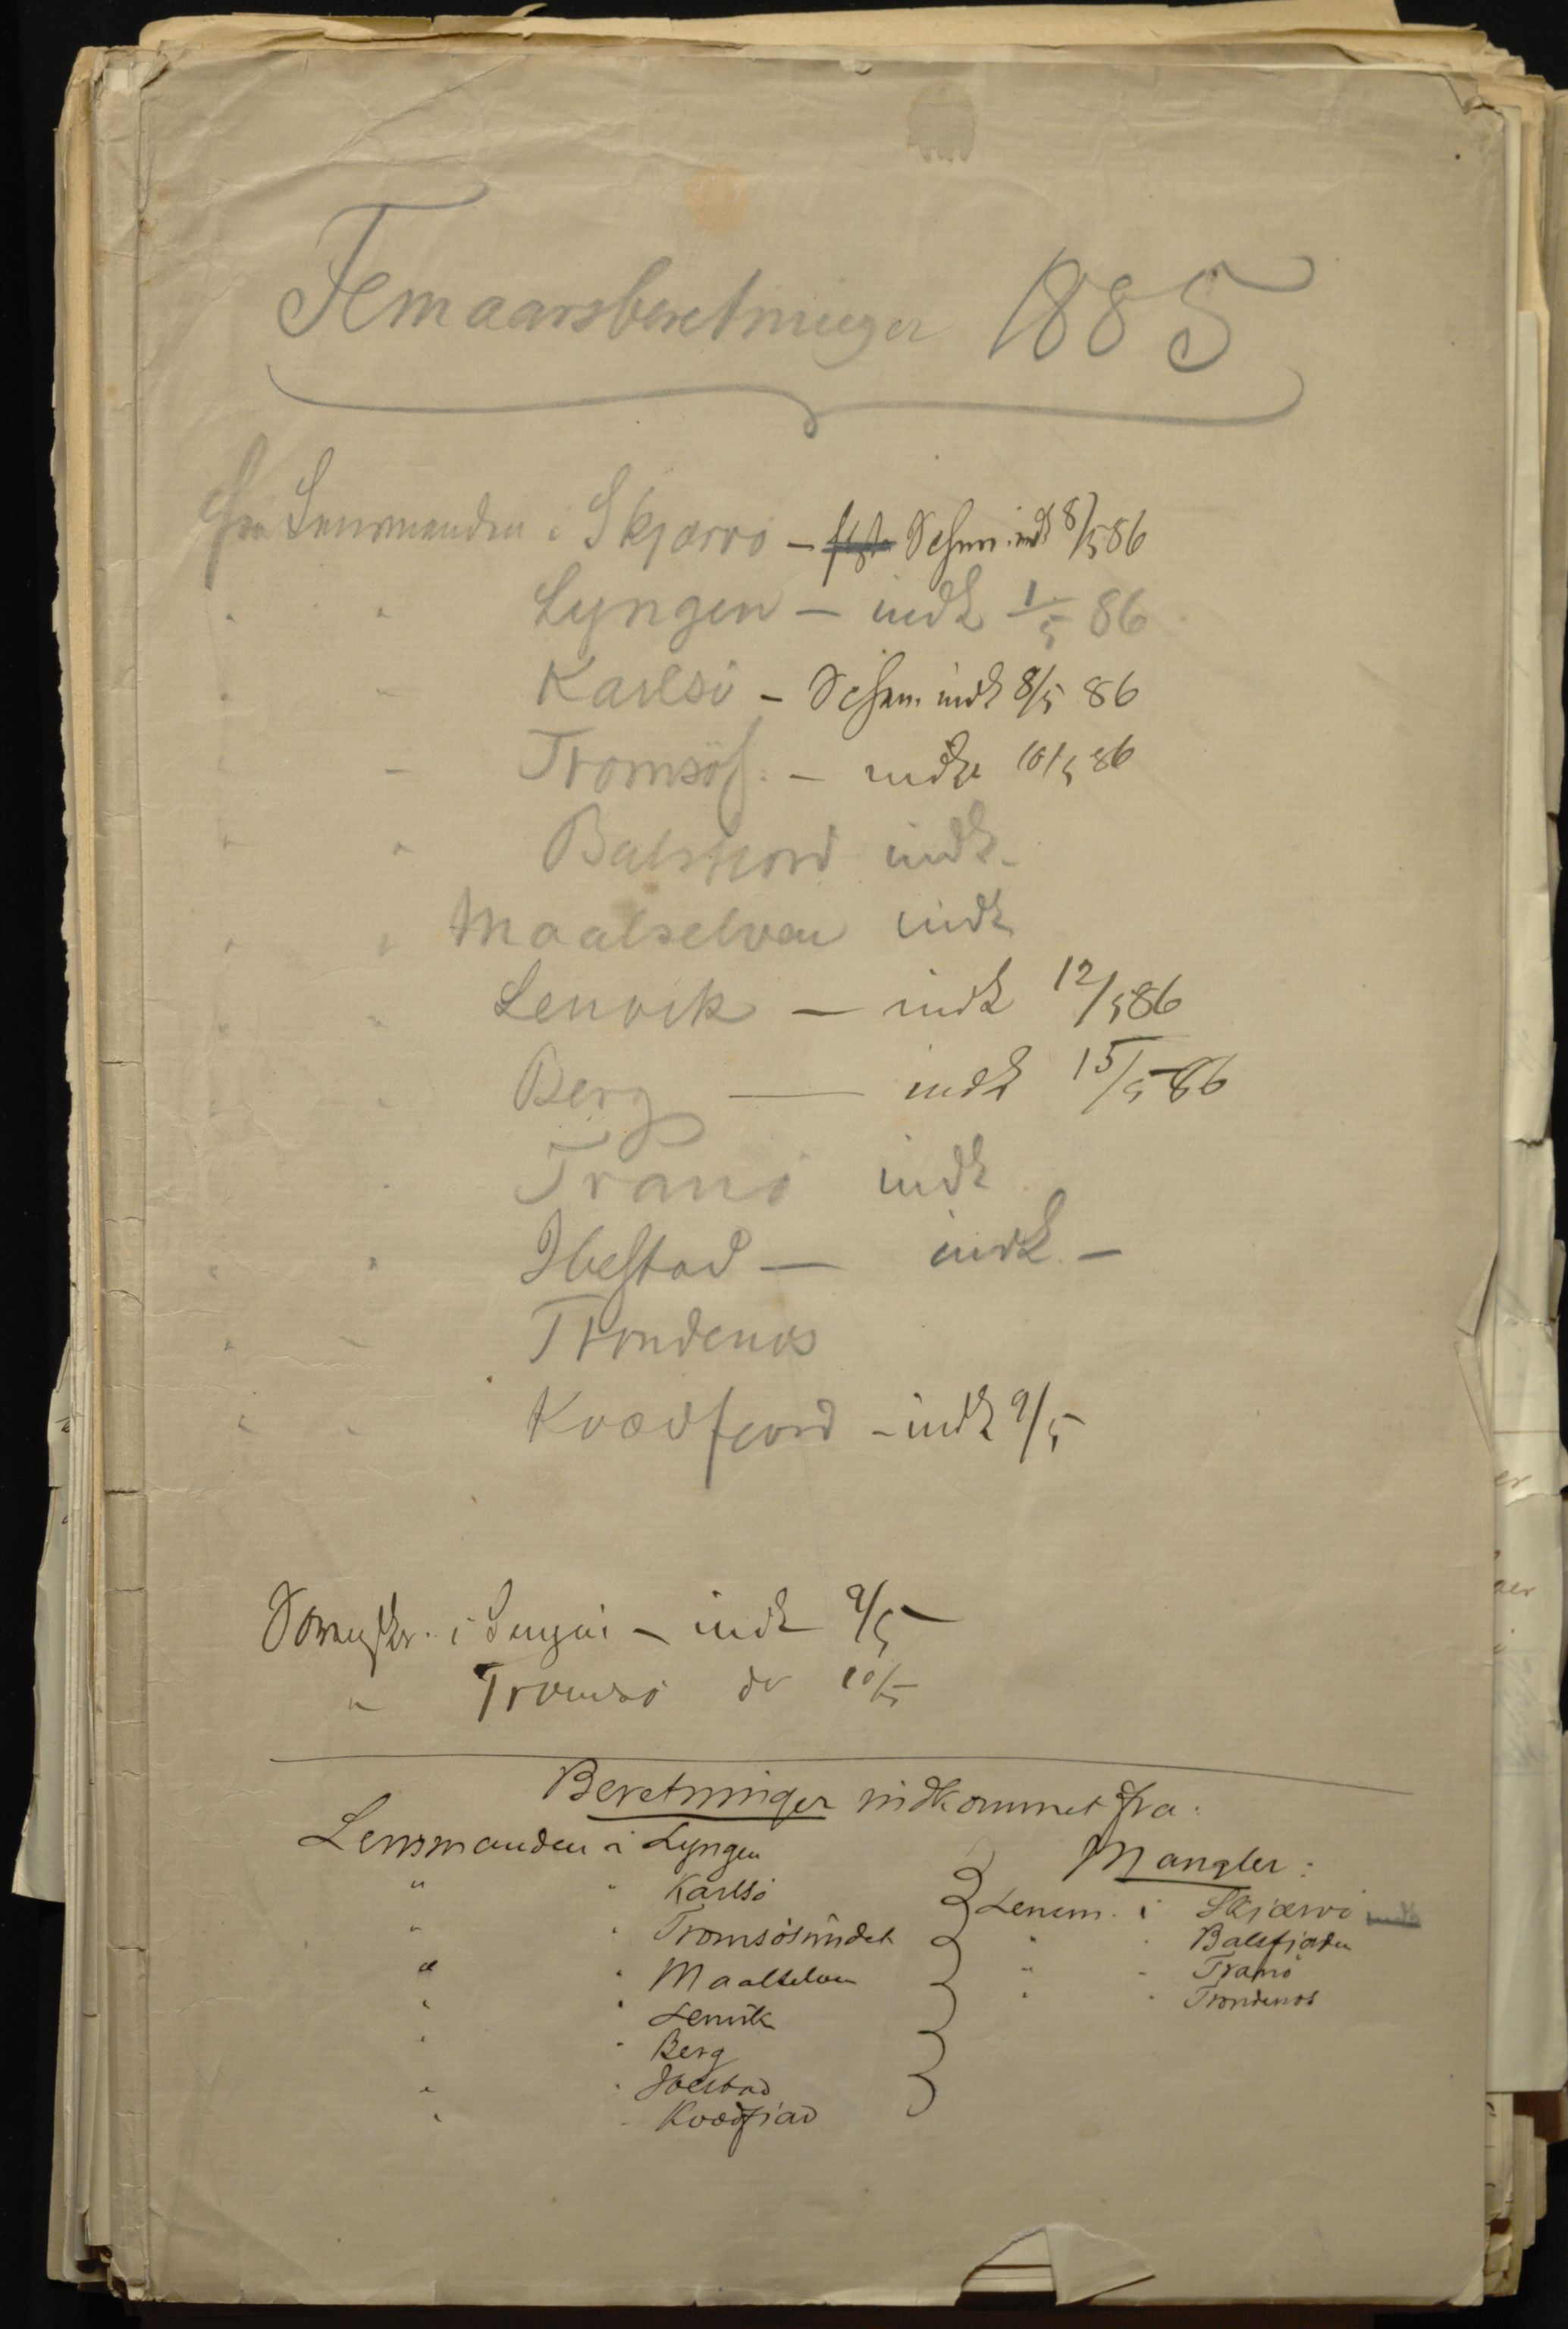 Femaarsberetninger 1885
Fra Lensmanden i Skjærvö – Schm. indk 8/5 86
" " Lyngen – indk 1/5 86
" " Karlsö – Schm. indk 8/5 86
" " Tromsös. – indk 10/5 86
" " Balsfjord indk
" " Maalselven indk
" " Lenvik – indk 12/5 86
" " Berg – indk 15/5 86
" Tranö indk
" " Ibestad – indk –
" " Trondenes
" " Kvædfjord – indk 9/5
i Senjen – indk 9/5
" Tromsö do 10/5
Beretninger indkommet fra:
Lensmanden i Lyngen
" " Karlsö
" " Tromsösundet
" " Maalselven
" " Lenvik
" " Berg
" " Ibestad
" " Kvædfjord
Mangler:
Lensm. i Skjærvö
" " Balsfjorden
" " Tranö
" " Trondenes